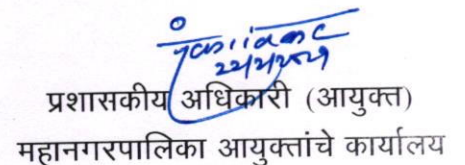 प्रशासकीय अधिकारी (आयुक्त)
महानगरपालिका आयुक्तांचे कार्यालय